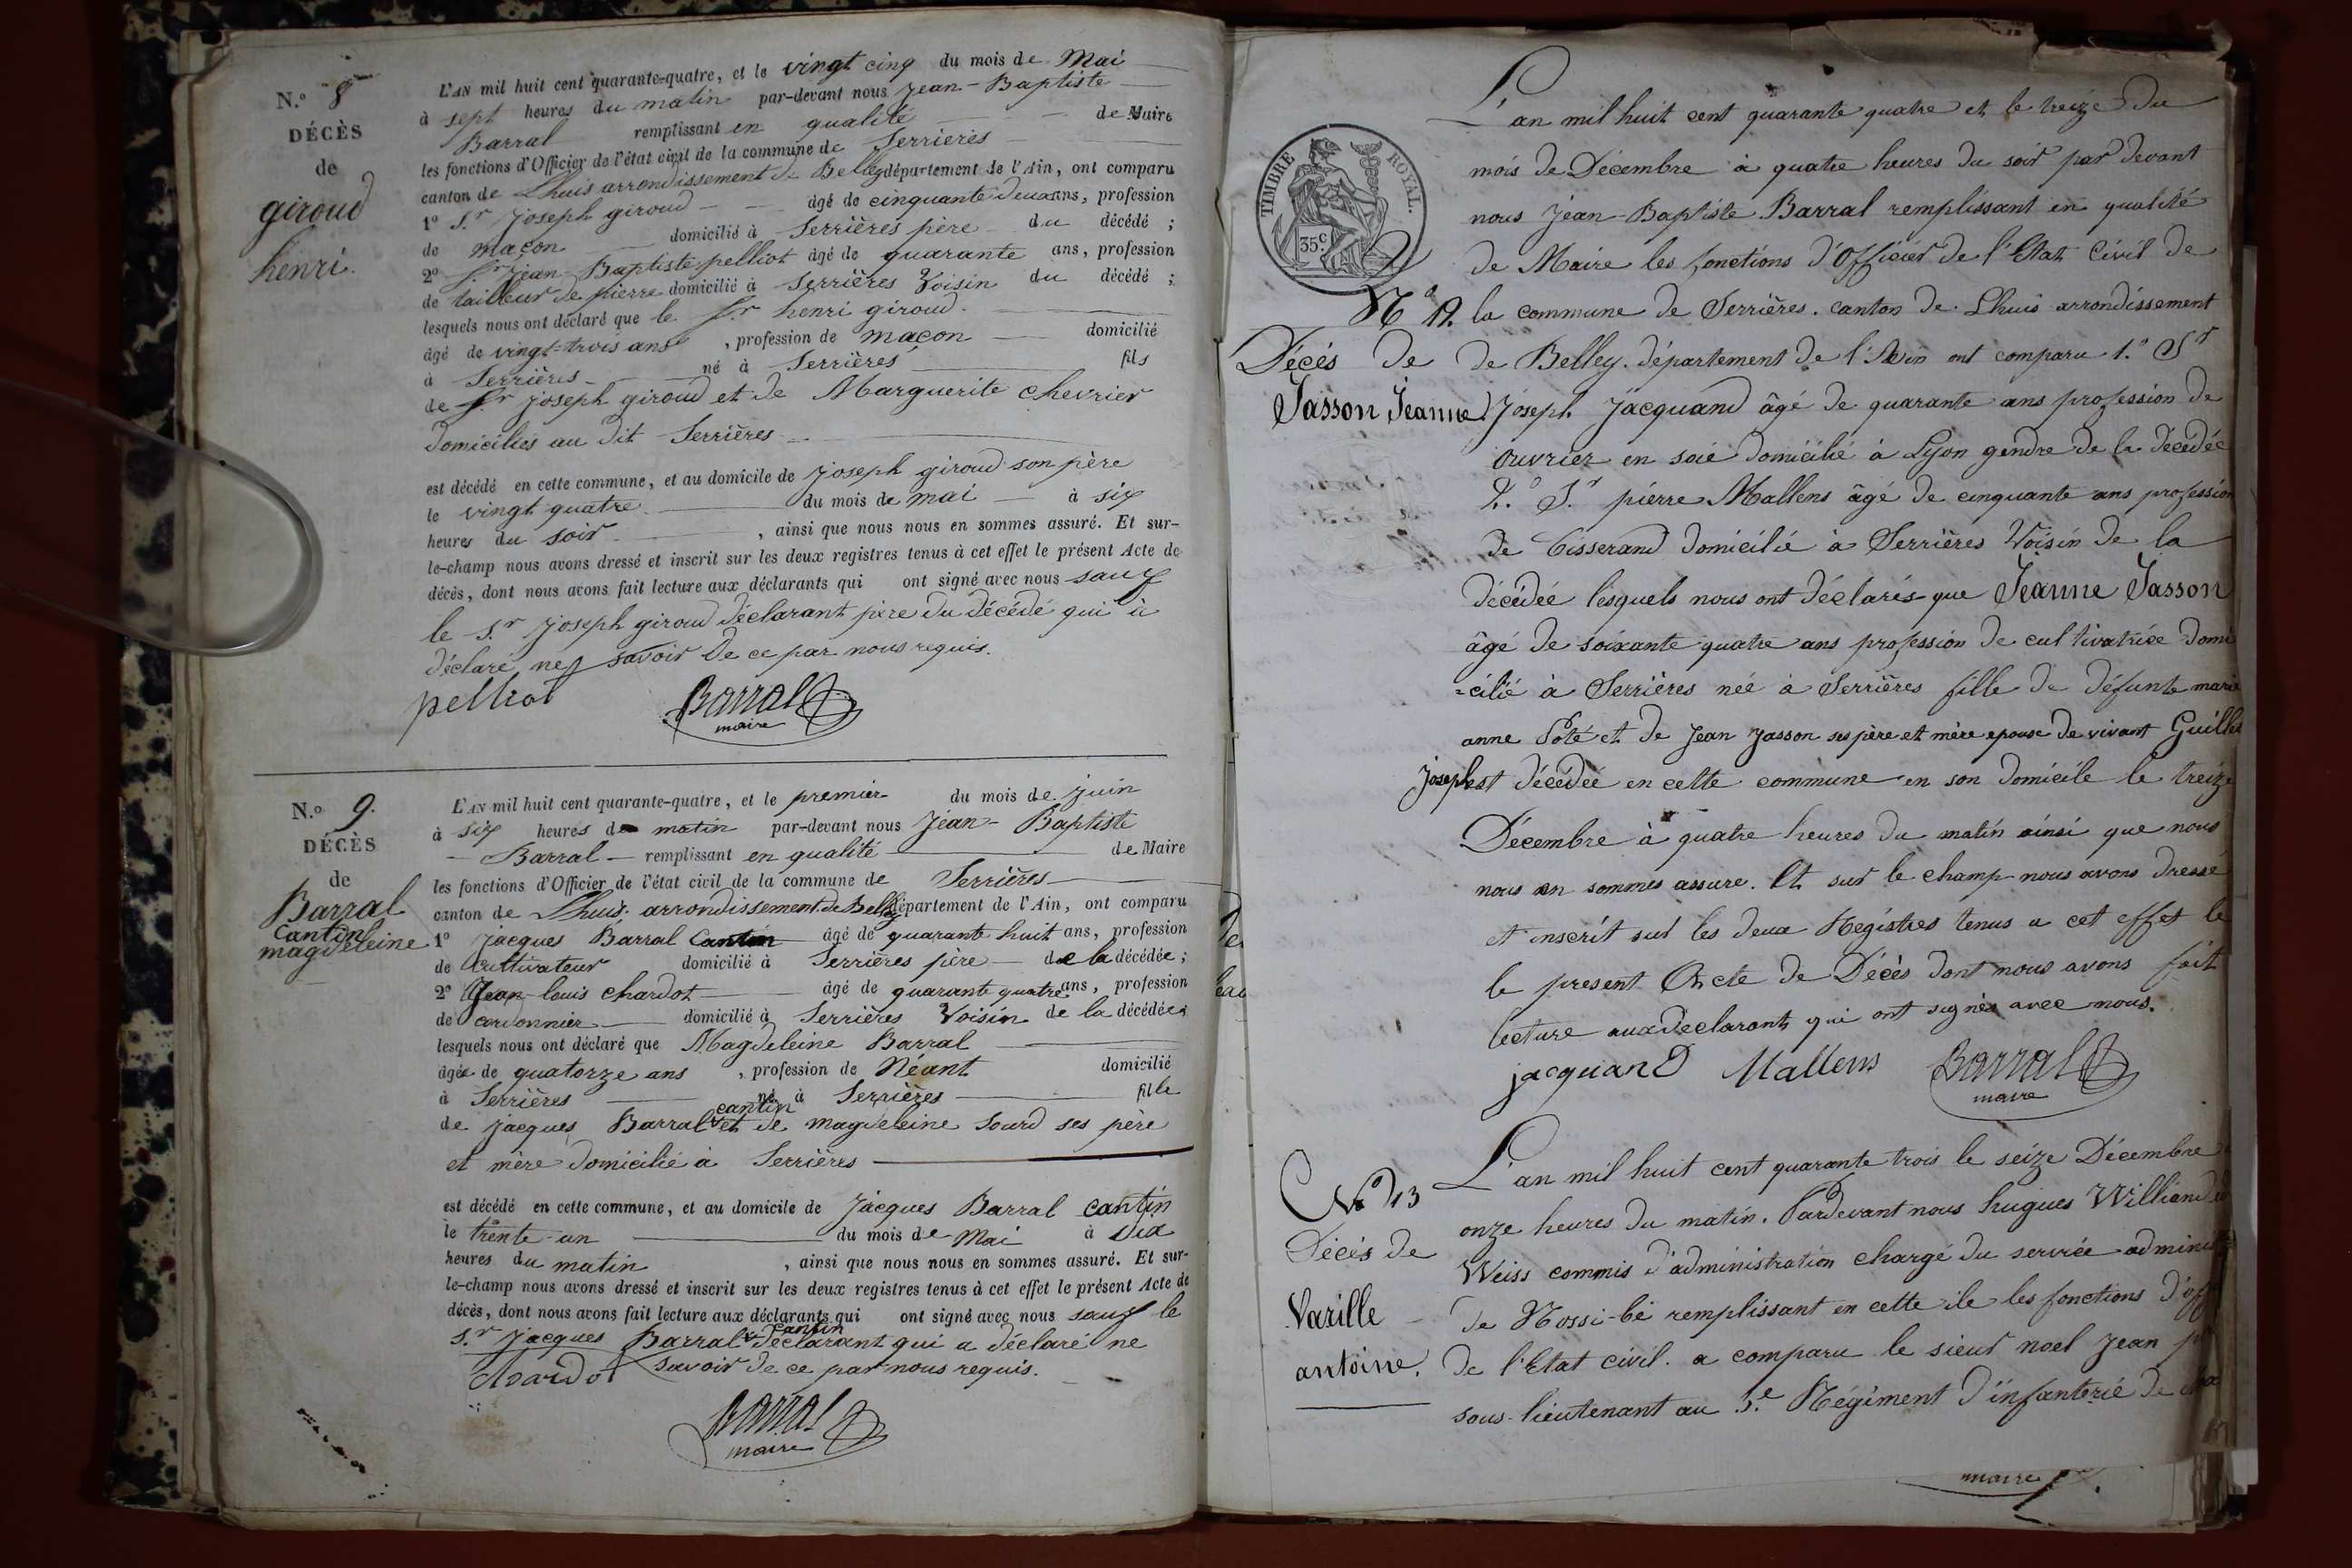 N.º 8
DÉCÈS
de
giroud
henri.
L'AN mil huit cent quarante-quatre, et le vingt cinq du mois de Mai
à sept heures du matin par-devant nous Jean-Baptiste
Barral remplissant en qualité de Maire
les fonctions d'Officier de l'état civil de la commune de Serrières
canton de Lhuis arrondissement de Belley département de l'Ain, ont comparu
1º S.r Joseph giroud âgé de cinquante deux ans, profession
de maçon domicilié à Serrières père du décédé ;
2º S.r Jean Baptiste pelliot âgé de quarante ans, profession
de tailleur de pierre domicilié à Serrières Voisin du décédé ;
lesquels nous ont déclaré que le S.r henri giroud.
âgé de vingt-trois ans , profession de maçon domicilié
à Serrières né à Serrières fils
de S.r Joseph giroud et de Marguerite chevrier
domiciliés au dit Serrières
est décédé en cette commune, et au domicile de Joseph giroud son père
le vingt quatre du mois de mai à six
heures du soir , ainsi que nous nous en sommes assuré. Et sur-
le-champ nous avons dressé et inscrit sur les deux registres tenus à cet effet le présent Acte de
décès, dont nous avons fait lecture aux déclarants qui ont signé avec nous sauf
le S.r Joseph giroud déclarant père du décédé qui à
déclaré, ne savoir de ce par nous requis.
pelliot Barral
maire
N.º 9.
DÉCÈS
de
Barral
Cantin
magdeleine
L'AN mil huit cent quarante-quatre, et le premier du mois de Juin
à six heures de matin par-devant nous Jean-Baptiste
Barral remplissant en qualité de Maire
les fonctions d'Officier de l'état civil de la commune de Serrières
canton de Lhuis. arrondissement de Belley département de l'Ain, ont comparu
1º Jacques Barral Cantin âgé de quarante huit ans, profession
de Cultivateur domicilié à Serrières père de la décédée ;
2º Jean louis chardot âgé de quarante quatre ans, profession
de cordonnier domicilié à Serrières Voisin de la décédée ;
lesquels nous ont déclaré que Magdeleine Barral
âgée de quatorze ans , profession de Néant domicilié
à Serrières né à Serrières fille
de Jacques Barral cantin et de magdeleine Sourd ses père
et mère domicilié à Serrières
est décédé en cette commune, et au domicile de Jacques Barral cantin
le trente-un du mois de Mai à dix
heures du matin , ainsi que nous nous en sommes assuré. Et sur-
le-champ nous avons dressé et inscrit sur les deux registres tenus à cet effet le présent Acte de
décès, dont nous avons fait lecture aux déclarants qui ont signé avec nous sauf le
S.r Jacques Barral cantin déclarant qui a déclaré ne
savoir de ce par nous requis.
Chardot
Barral
maire
TIMBRE ROYAL.
35 c.
Nº 12.
Décés de
Jasson Jeanne
L'an mil huit cent quarante quatre et le treize du
mois de Décembre à quatre heures du soir par devant
nous Jean-Baptiste Barral remplissant en qualité
de Maire les fonctions d'Officier de l'Etat Civil de
la commune de Serrières. canton de Lhuis arrondissement
de Belley. département de l'Ain ont comparu 1.º S.r
Joseph Jacquand âgé de quarante ans profession de
ouvrier en soie domicilié à Lyon gendre de la décédée
2.º S.r pierre Mallens âgé de cinquante ans profession
de Tisserand domicilié à Serrières Voisin de la
décédée lesquels nous ont déclarés que Jeanne Jasson
âgé de soixante quatre ans profession de cultivatrice domi
=cilié à Serrières née à Serrières fille de défunte marie
anne Poté et de Jean Jasson ses père et mère epouse de vivant Guillet
Joseph est décédée en cette commune en son domicile le treize
Décembre à quatre heures du matin ainsi que nous
nous en sommes assure. Et sur le champ nous avons dressé
et inscrit sur les deux Régistres tenus a cet effet le
le present Acte de Décès dont nous avons fait
lecture aux Declarants qui ont signés avec nous.
jacquand Mallens Barral
maire
Nº 13
Décés de
Varille
antoine.
L'an mil huit cent quarante trois le seize Décembre
onze heures du matin. Pardevant nous hugues Williand
Weiss commis d'administration chargé du service
de Nossi-bé remplissant en cette ile les fonctions
de l'Etat civil. a comparu le sieur noel Jean
sous-lieutenant au 3.e Régiment d'infanterie de
maire